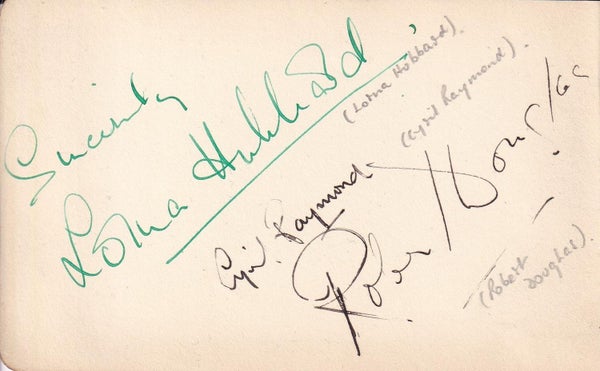 Sincerely
Lorna Hubbard
(Lorna Hobbard).
Cyril Raymond
(Cyril Raymond).
Robert Douglas
(Robert
Douglas)